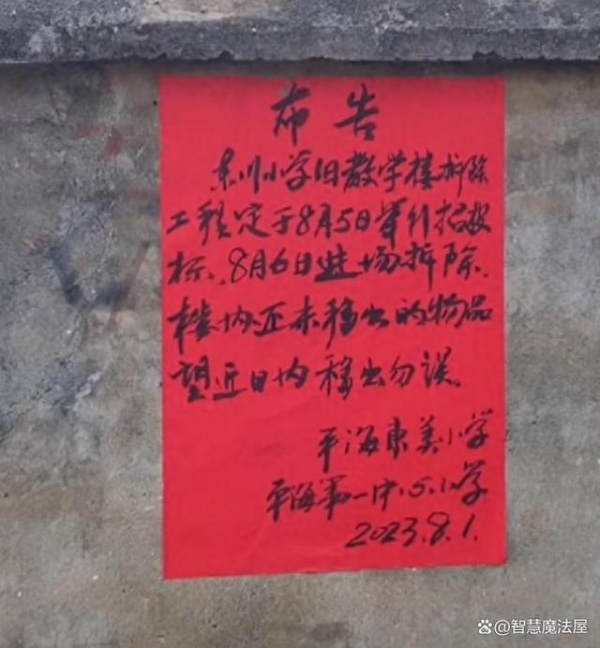 布告
东川小学旧教学楼拆除
工程定于8月5日举行招投
标、8月6日进场拆除、
楼内还未移出的物品
望近日内移出勿误。
平海东美小学
平海第一中心小学
2023.8.1.
@智慧魔法屋